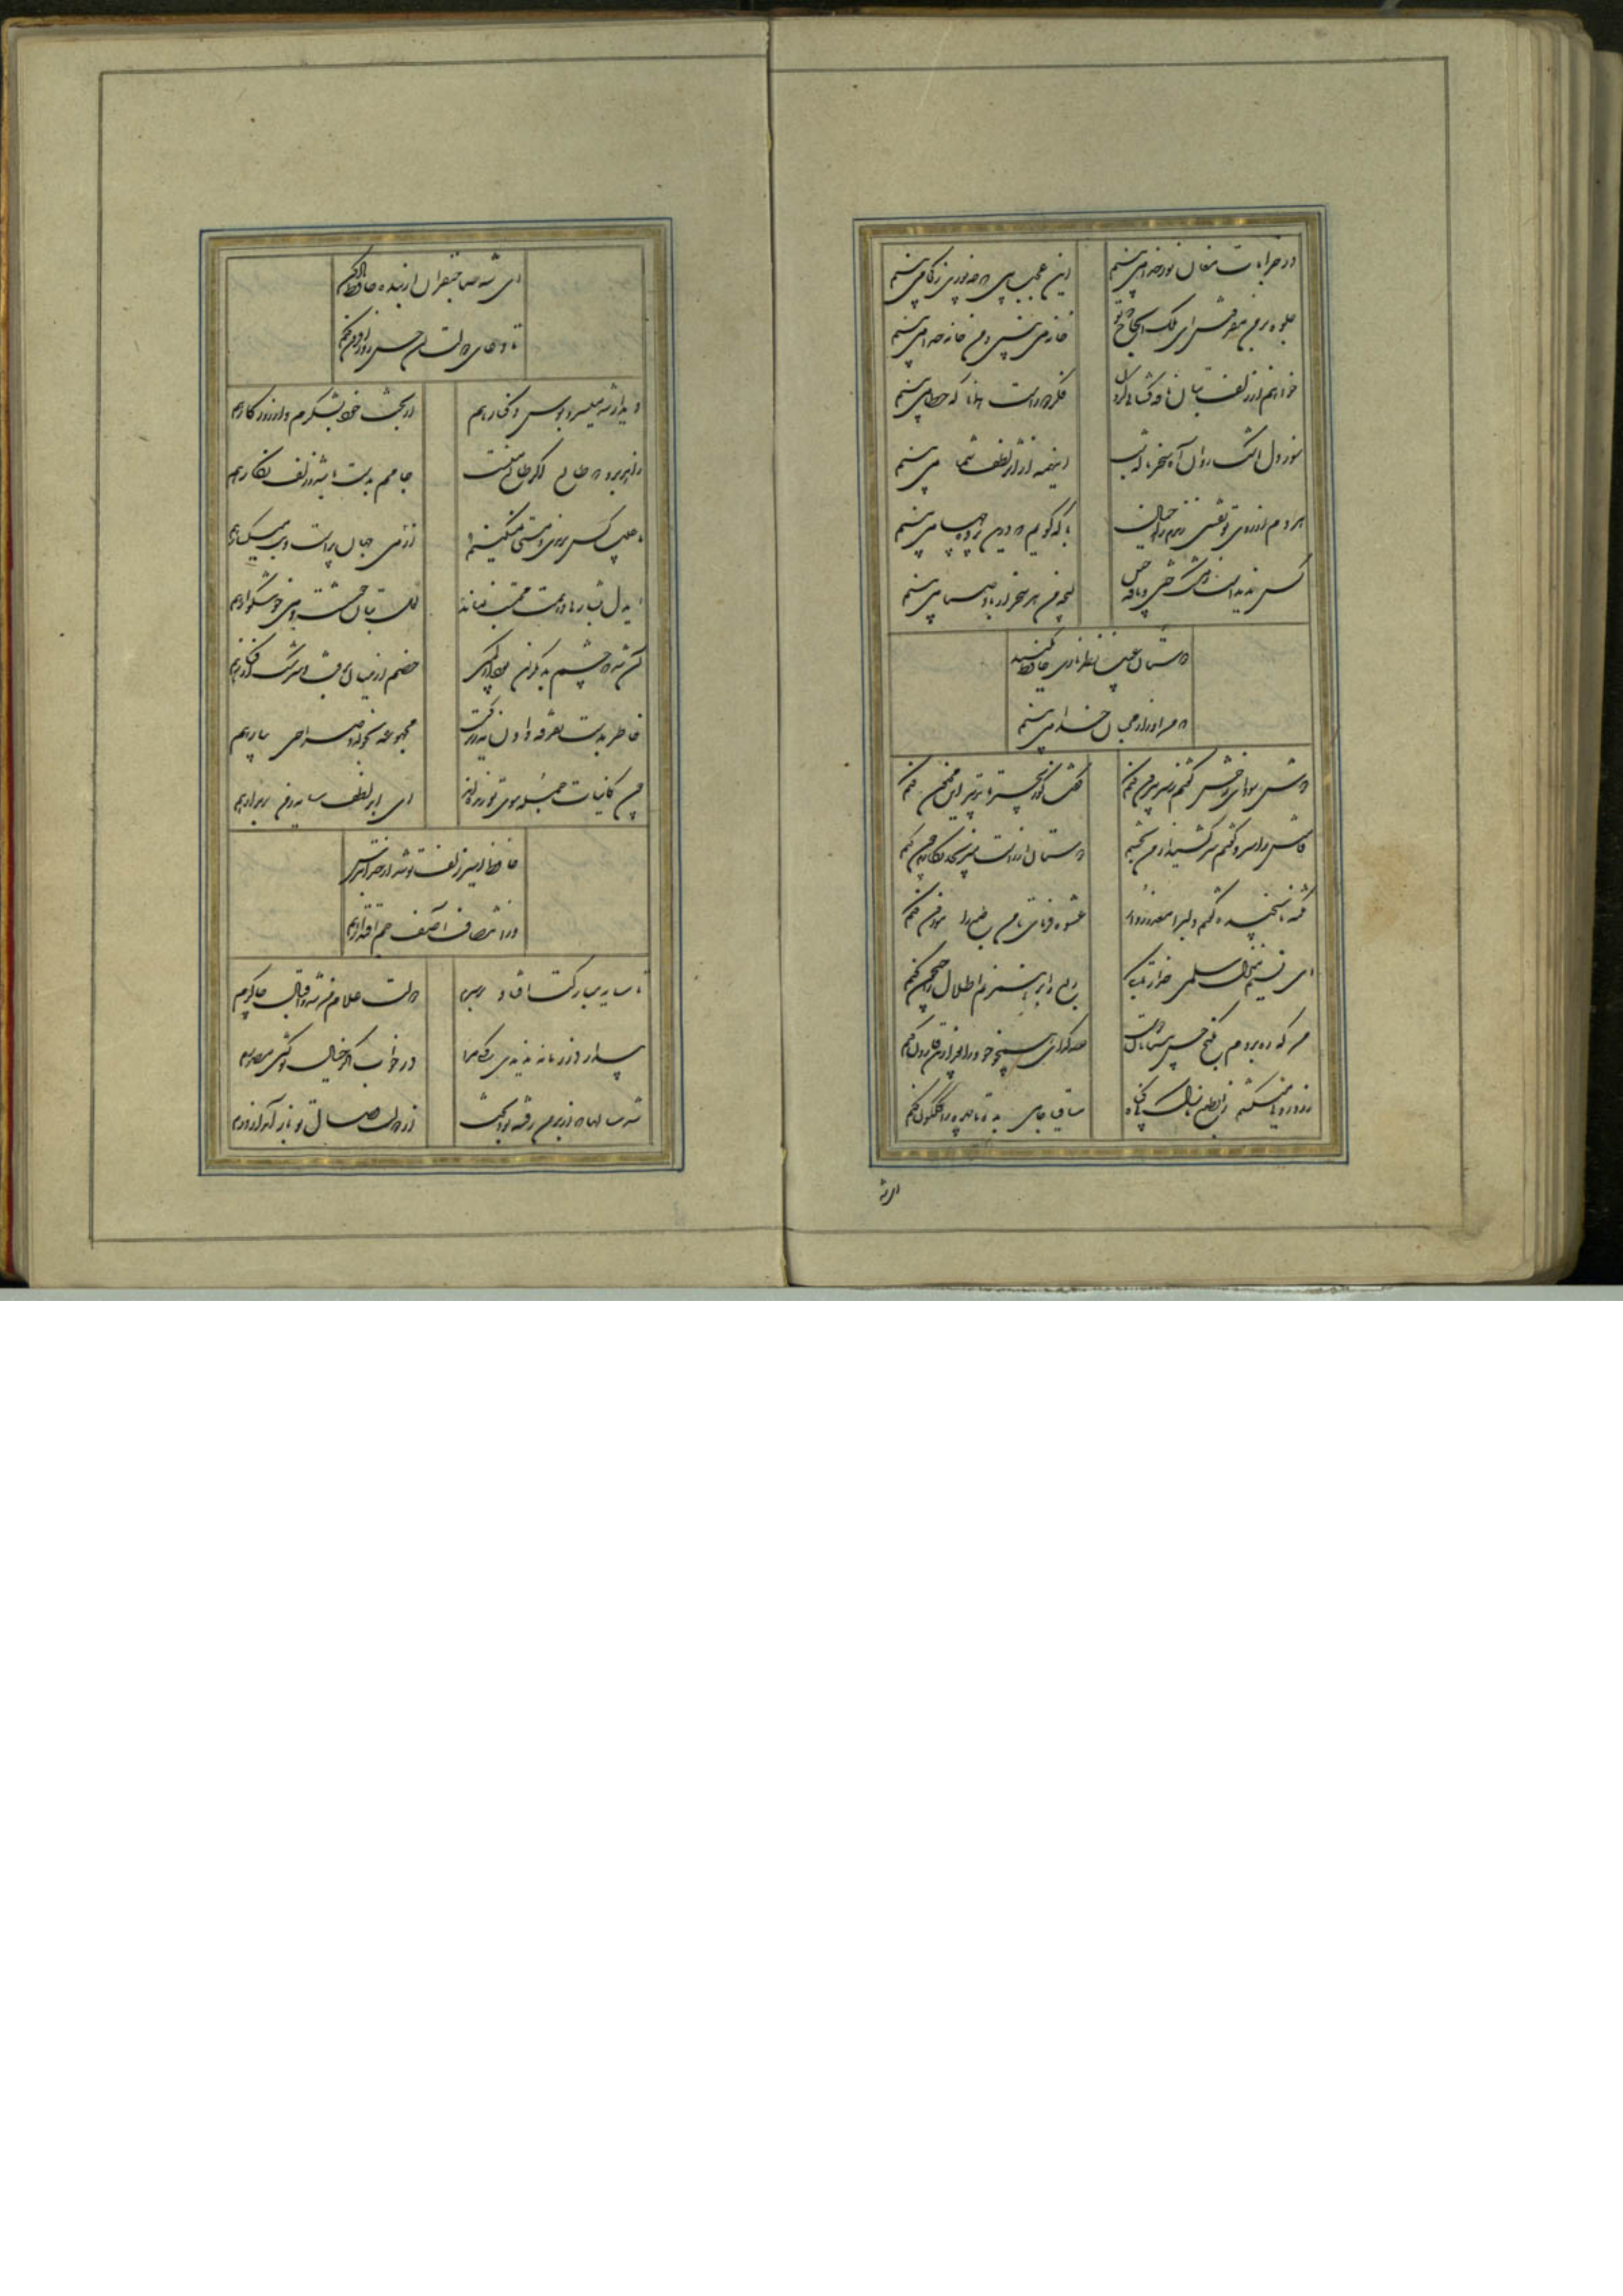 در خرابات مغان نور خدا می‌بینم
این عجب بین که چه نوری ز کجا می‌بینم
جلوه بر من مفروش ای ملک الحاج که تو
خانه می‌بینی و من خانه خدا می‌بینم
خواهم از زلف بتان نافه گشایی کردن
فکر دورست همانا که خطا می‌بینم
سوز دل اشک روان آه سحر ناله شب
اینهمه از اثر لطف شما می‌بینم
هر دم از روی تو نقشی زندم راه خیال
با که گویم که درین پرده چها می‌بینم
کس ندیدست ز مشک ختن و نافه چین
آنچه من هر سحر از باد صبا می‌بینم
دوستان عیب نظربازی حافظ مکنید
که من او را ز محبان خدا می‌بینم
دوش سودای رخش گفتم ز سر بیرون کنم
گفت کو زنجیر تا تدبیر این مجنون کنم
قامتش را سرو گفتم سر کشید از من بخشم
دوستان از راست می‌رنجد نگارم چون کنم
نکته ناسنجیده گفتم دلبرا معذور دار
عشوه فرمای تا من طبع را موزون کنم
ای نسیم منزل سلمی خدا را تا بکی
ربع را بر هم زنم اطلال را جیحون کنم
من که ره بردم بگنج حسن بی‌پایان دوست
صد گدای همچو خود را بعد ازین قارون کنم
زردرویی می‌کشم زان طبع نازک بی‌گناه
ساقیا جامی بده تا چهره را گلگون کنم
ای مه
ای مه صاحبقران از بنده حافظ یاد کن
تا دعای دولت آن حسن روزافزون کنم
دیدار شد میسر و بوس و کنار هم
از بخت خود بشکرم و از روزگار هم
زاهد برو که طالع اگر طالع منست
جامم بدست باشد و زلف نگار هم
ما عیب کس برندی و مستی نمی‌کنیم
لعل بتان خوشست و می خوشگوار هم
ای دل بشارتی دهمت محتسب نماند
از می جهان پرست و بت میگسار هم
آن شد که چشم بد نگران بودی از کمین
خصم از میان برفت و سرشک از کنار هم
خاطر بدست تفرقه دادن نه زیرکیست
مجموعه بخواه و صراحی بیار هم
چون کاینات جمله ببوی تو زنده‌اند
ای ابر لطف سایه ز من بر مدار هم
حافظ اسیر زلف تو شد از خدا بترس
وز انتصاف آصف جم اقتدار هم
تا سایه مبارکت افتاد بر سرم
دولت غلام من شد و اقبال چاکرم
بیدار در زمانه ندیدی کسی مرا
در خواب اگر خیال تو گشتی مصورم
شد سالها که از بر من رفته بود بخت
از دولت وصال تو باز آمد از درم